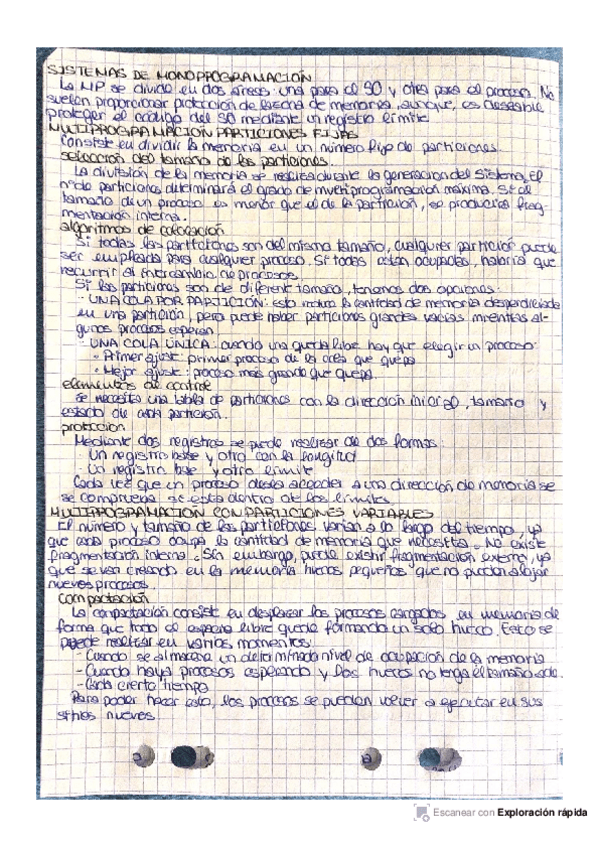 SISTEMAS DE MONOPROGRAMACIÓN
La MP se divide en dos áreas: una para el SO y otra para el proceso. No
suelen proporcionar protección de esa zona de memoria, aunque, es deseable
proteger el código del SO mediante un registro límite
MULTIPROGRAMACIÓN PARTICIONES FIJAS
Consiste en dividir la memoria en un número fijo de particiones.
selección del tamaño de las particiones.
La división de la memoria se realiza durante la generación del sistema. El
nº de particiones determinará el grado de multiprogramación máxima. Si el
tamaño de un proceso es menor que el de la partición, se producirá frag-
mentación interna.
algoritmos de colocación
Si todas las particiones son del mismo tamaño, cualquier partición puede
ser empleada para cualquier proceso. Si todas están ocupadas, habría que
recurrir al intercambio de procesos.
Si las particiones son de diferente tamaño, tenemos dos opciones:
- UNA COLA POR PARTICIÓN: esto la cantidad de memoria desperdiciada
en una partición, pero puede haber particiones grandes vacías mientras al-
gunos procesos esperan.
- UNA COLA ÚNICA: cuando una queda libre hay que elegir un proceso:
• Primer ajuste: primer proceso de la cola que quepa
• Mejor ajuste: proceso más grande que quepa.
elementos de control
Se necesita una tabla de particiones con la dirección inicial, tamaño y
estado de cada partición.
protección
Mediante dos registros se puede realizar de dos formas:
- Un registro base y otro con la longitud
- Un registro base y otro límite
Cada vez que un proceso desea acceder a una dirección de memoria se
se comprueba si esta dentro de los límites.
MULTIPROGRAMACIÓN CON PARTICIONES VARIABLES
El número y tamaño de las particiones varían a lo largo del tiempo, ya
que cada proceso ocupa la cantidad de memoria que necesita. No existe
fragmentación interna. Sin embargo, puede existir fragmentación externa, ya
que se van creando en la memoria huecos pequeños que no pueden alojar
nuevos procesos.
compactación
La compactación consiste en desplazar los procesos cargados en memoria de
forma que todo el espacio libre quede formando un solo hueco. Esto se
puede realizar en varios momentos:
- Cuando se alcance un determinado nivel de ocupación de la memoria
- Cuando haya procesos esperando y los huecos no tenga el tamaño
- Cada cierto tiempo
Para poder hacer esto, los procesos se pueden volver a ejecutar en sus
sitios nuevos.
Escanear con Exploración rápida